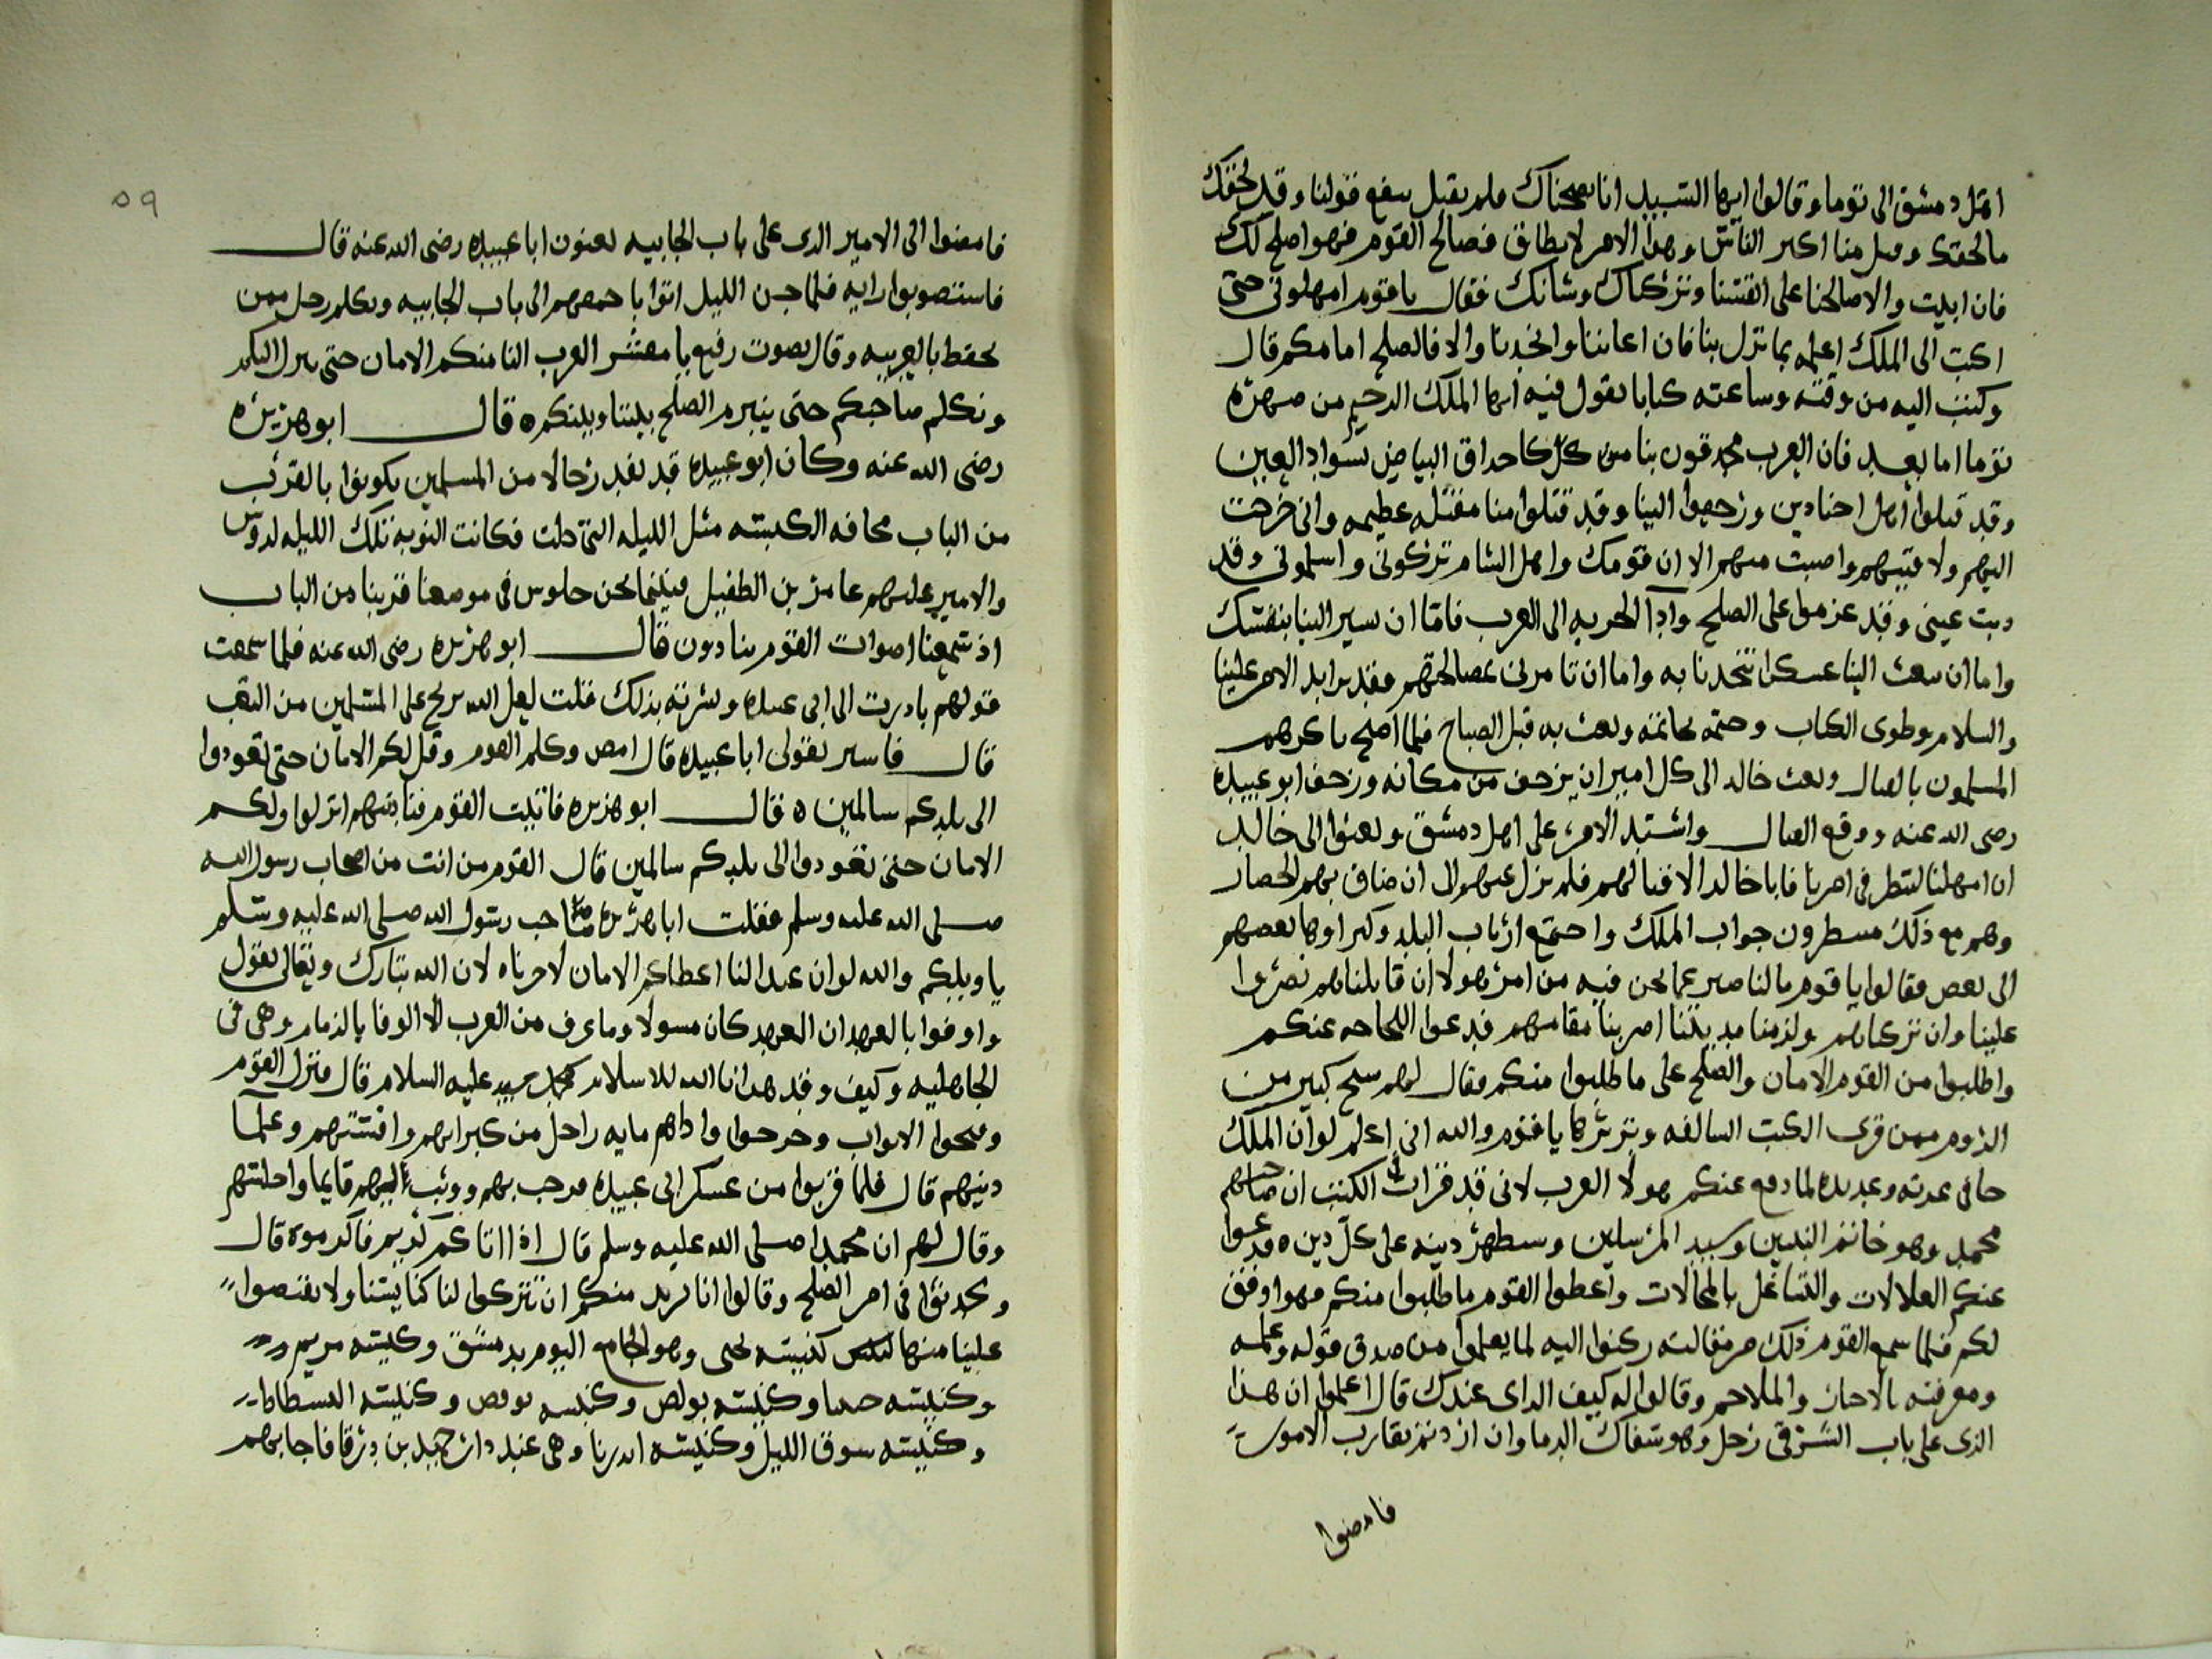 اهل دمشق الى توما وقالوا ايها السيد انا نصحناك فلم يقبل سفع قولنا وقد لحقك
ما لحقك وقتل منا اكبر الناس وهذا الامر لا يطاق فصالح القوم فهو اصلح لك
فان ابيت والا صالحنا على انفسنا وتركناك وشانك فقال يا قوم امهلونى حتى
اكتب الى الملك اعلمه بما نزل بنا فان اعاننا وانجدنا والا فالصلح امامكم قال
وكتب اليه من وقته وساعته كتابا يقول فيه ايها الملك الرحيم من صهره
توما اما بعد فان العرب محدقون بنا من كل كاحداق البياض بسواد العين
وقد قتلوا اهل اجنادين ورجعوا الينا وقد قتلوا منا مقتله عظيمه وانى خرجت
اليهم ولاقيتهم واصبت منهم الا ان قومك واهل الشام تركونى واسلمونى وقد
ذهبت عينى وقد عزموا على الصلح وادا الجزيه الى العرب فاما ان تسير الينا بنفسك
واما ان تبعث الينا عسكرا تنجدنا به واما ان تامرنى بمصالحتهم فقد تزايد الامر علينا
والسلام وطوى الكتاب وختمه بخاتمه وبعث به قبل الصباح فلما اصبح باكرهم
المسلمون بالقتال وبعث خالد الى كل امير ان يزحف من مكانه وزحف ابو عبيده
رضى الله عنه ووقع القتال واشتد الامر على اهل دمشق وبعثوا الى خالد
ان امهلنا لننظر فى امرنا فابا خالد الا قتالهم فلم يزل عليهم الى ان ضاق بهم الحصار
وهم مع ذلك منتظرون جواب الملك واجتمع ارباب البلد وكبراوها بعضهم
الى بعض فقالوا يا قوم ما لنا صبر عما نحن فيه من امر هولا ان قاتلناهم نصروا
علينا وان تركناهم ولزمنا مدينتنا اضر بنا مقامهم فدعوا اللجاجه عنكم
واطلبوا من القوم الامان والصلح على ما طلبوا منكم فقال لهم شيخ كبير من
الروم ممن قرى الكتب السالفه وتزبرها يا قوم والله انى اعلم لو ان الملك
جا فى عدته وعديده لما دفع عنكم هولا العرب لانى قد قرات فى الكتب ان صاحبهم
محمد وهو خاتم النبيين وسيد المرسلين وسيظهر دينه على كل دين ٥ فدعوا
عنكم العلالات والتشاغل بالمحالات واعطوا القوم ما طلبوا منكم فهو اوفق
لكم فلما سمع القوم ذلك من مقالته ركنوا اليه لما يعلموا من صدق قوله وعلمه
ومعرفته بالاخبار والملاحم وقالوا له كيف الراى عندك قال اعلموا ان هذا
الذى على باب الشرقى رجل وهو سفاك الدما وان اردتم تقارب الامور
فامضوا
٥٩
فامضوا الى الامير الذى على باب الجابيه يعنون ابا عبيده رضى الله عنه قال
فاستصوبوا رايه فلما جن الليل اتوا باجمعهم الى باب الجابيه وتكلم رجل ممن
يحفظ بالعربيه وقال بصوت رفيع يا معشر العرب النا منكم الامان حتى ننزل اليكم
ونكلم صاحبكم حتى ينبرم الصلح بيننا وبينكم ٥ قال ابو هريره
رضى الله عنه وكان ابو عبيده قد نفد رجالا من المسلمين يكونوا بالقرب
من الباب مخافه الكبسه مثل الليله التى خلت فكانت النوبه تلك الليله لدوس
والامير عليهم عامر بن الطفيل فبينما نحن جلوس فى موضعنا قريبا من الباب
اذ سمعنا اصوات القوم ينادون قال ابو هريره رضى الله عنه فلما سمعت
قولهم بادرت الى ابى عبيده وبشرته بذلك فقلت لعل الله يريح على المسلمين من التعب
قال فاسر بقولى ابا عبيده قال امض وكلم القوم وقل لكم الامان حتى تعودوا
الى بلدكم سالمين ٥ فقال ابو هريره فاتيت القوم فناديتهم انزلوا ولكم
الامان حتى تعودوا الى بلدكم سالمين قال القوم من انت من اصحاب رسول الله
صلى الله عليه وسلم فقلت ابا هريره صاحب رسول الله صلى الله عليه وسلم
يا ويلكم والله لو ان عبدا لنا اعطاكم الامان لاجزناه لان الله تبارك وتعالى يقول
واوفوا بالعهد ان العهد كان مسولا وما عرف من العرب الا الوفا بالذمام وهى فى
الجاهليه وكيف وقد هدانا الله للاسلام بمحمد عليه السلام قال فنزل القوم
وفتحوا الابواب وخرجوا واذاهم مايه راجل من كبرايهم واقستهم وعلما
دينهم قال فلما قربوا من عسكر ابى عبيده فرحب بهم ووثب اليهم قايما واجلسهم
وقال لهم ان محمدا صلى الله عليه وسلم قال اذا اتاكم كريم فاكرموه قال
وتحدثوا فى امر الصلح وقالوا انا نريد منكم ان تتركوا لنا كنايسنا ولا تنقصوا
علينا منها كنيسه يحيى وهو الجامع اليوم بدمشق وكنيسه مريم
وكنيسه حنينا وكنيسه بولص وكنيسه وكنيسه
وكنيسه سوق الليل وكنيسه اندريا وهى عند دار حميد بن درقا فاجابهم